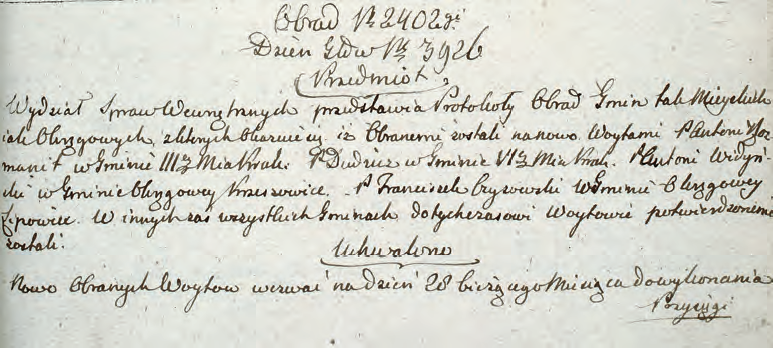 Obrad Nr 2402gi
Dzien. Głów Nr 3926
Przedmiot
Wydział Spraw Wewnętrznych przedstawia Protokoły Obrad Gmin tak Mieyskich
iak Okręgowych, z których okazuie się iż Obranemi zostali na nowo Woytami P Antoni
w Gminie III z Mia Krak: P Dudrewicz w Gminie VI z Mia Krak. P Antoni Widyń-
ski w Gminie Okręgowey Krzeszowice. P Franciszek Czyżowski w Gminie Okręgowey
Lipowiec. W innych zaś wszystkich Gminach dotychczasowi Woytowie potwierdzonemi
zostali.
Uchwalono
Nowo Obranych Woytow wezwać na dzień 28 bieżącego Miesiąca do wykonania
Przysięgi